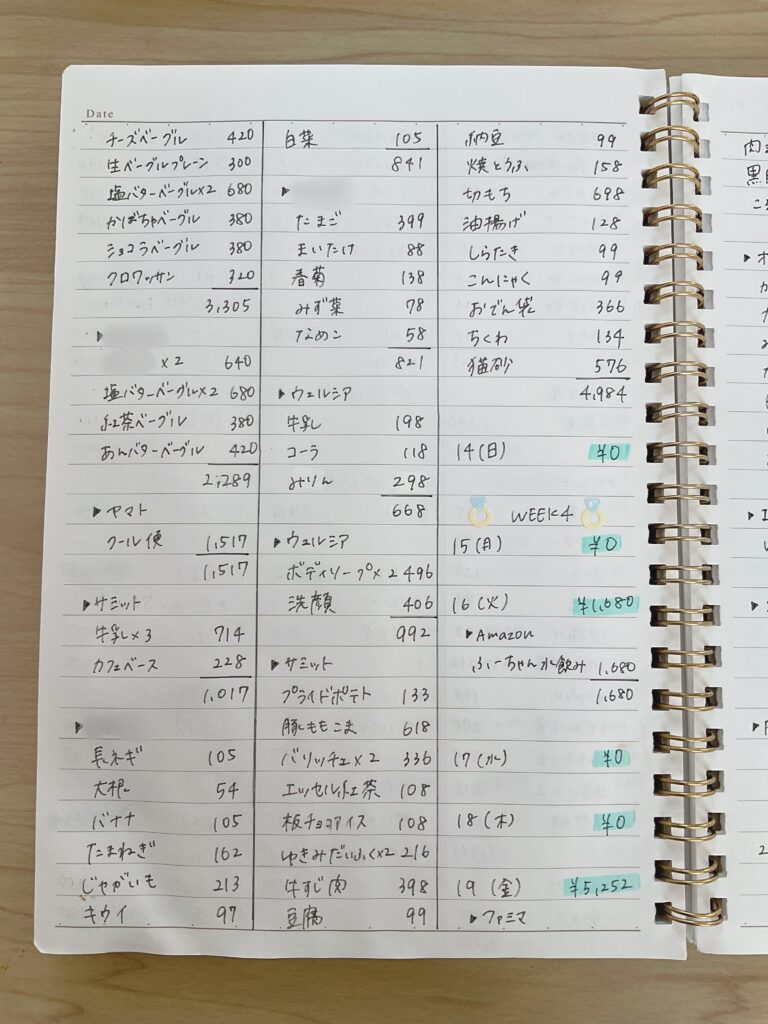 Date
チーズベーグル 420
生ベーグルプレーン 300
塩バターベーグル×2 680
かぼちゃベーグル 380
ショコラベーグル 380
クロワッサン 320
3,305
▶
×2 640
塩バターベーグル×2 680
紅茶ベーグル 380
あんバターベーグル 420
2,289
▶ヤマト
クール便 1,517
1,517
▶サミット
牛乳×3 714
カフェベース 228
1,017
▶
長ネギ 105
大根 54
バナナ 105
たまねぎ 162
じゃがいも 213
キウイ 97
白菜 105
841
▶
たまご 399
まいたけ 88
春菊 138
みず菜 78
なめこ 58
821
▶ウェルシア
牛乳 198
コーラ 118
みりん 298
668
▶ウェルシア
ボディソープ×2 496
洗顔 406
992
▶サミット
プライドポテト 133
豚ももこま 618
バリッチェ×2 336
エッセル紅茶 108
板チョコアイス 108
ゆきみだいふく×2 216
牛すじ肉 398
豆腐 99
納豆 99
焼とうふ 158
切もち 698
油揚げ 128
しらたき 99
こんにゃく 99
おでん袋 366
ちくわ 134
猫砂 576
4,984
14(日) ¥0
WEEK4
15(月) ¥0
16(火) ¥1,680
▶Amazon
ふーちゃん水飲み 1,680
1,680
17(水) ¥0
18(木) ¥0
19(金) ¥5,252
▶ファミマ
肉
黒